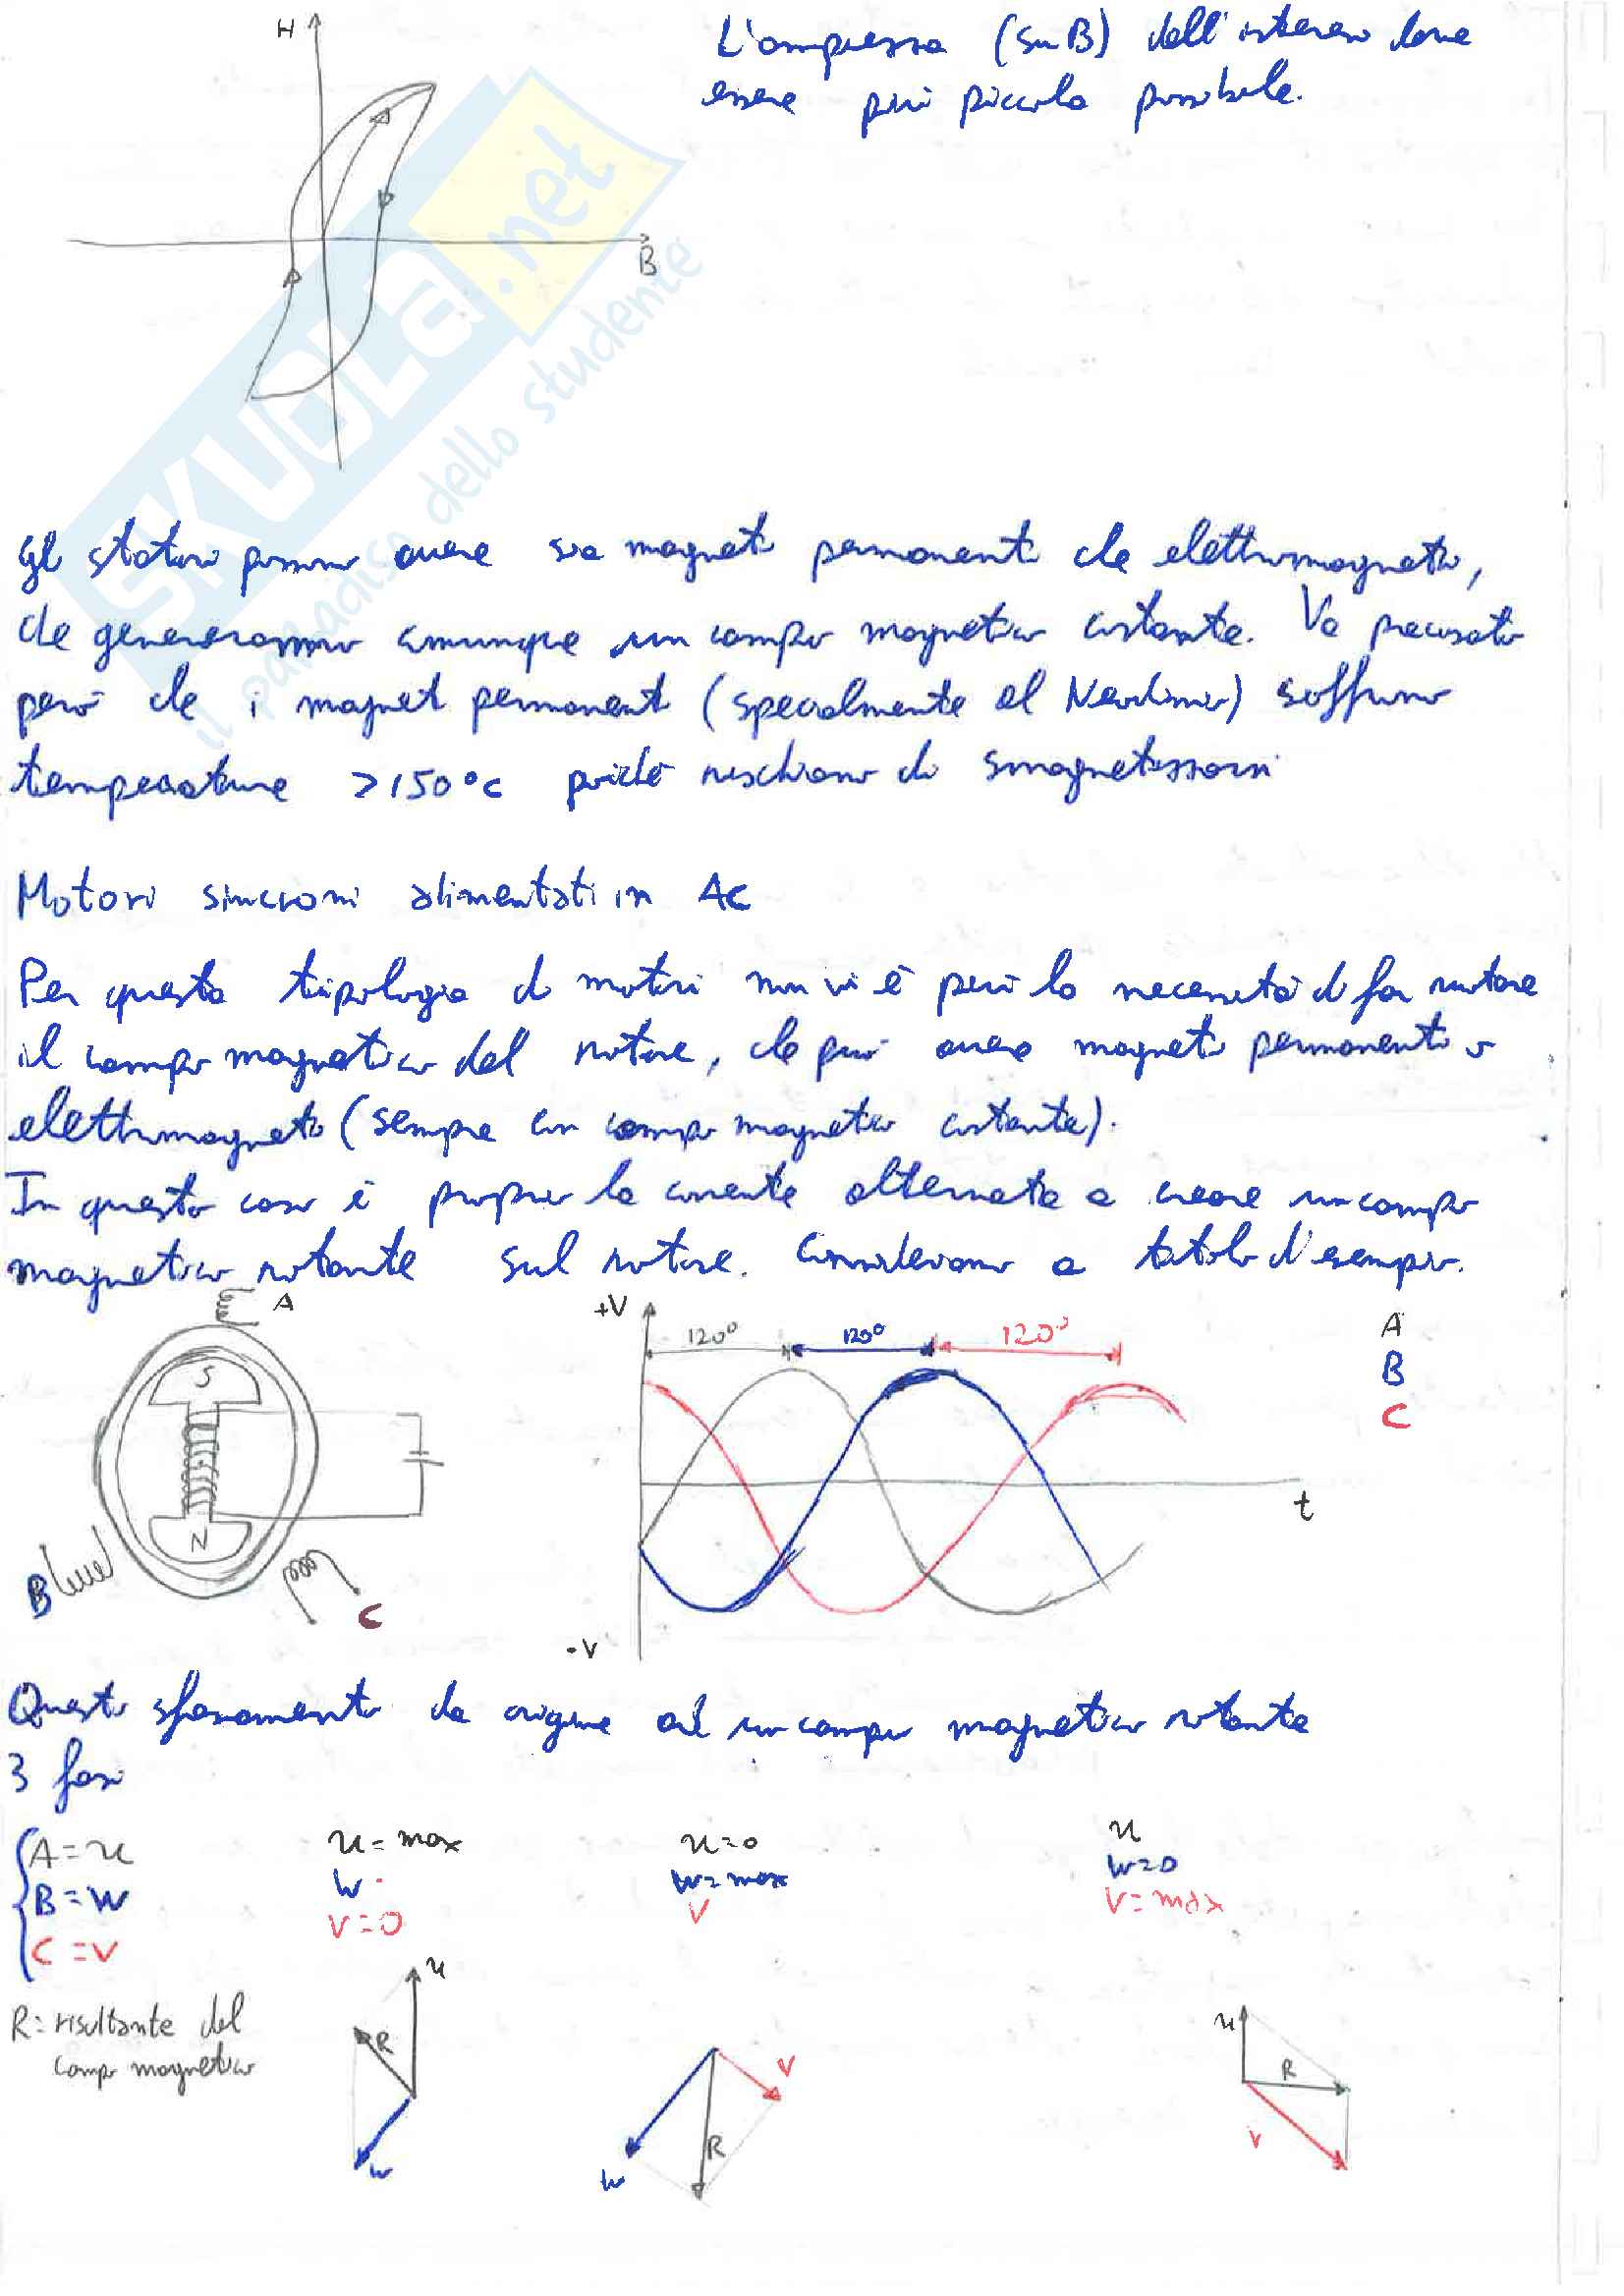 H
L'ampiezza (su B) dell'isteresi deve
essere più piccola possibile.
B
SKUOLA.net
il paradiso dello studente
Gli statori possono avere sia magneti permanenti che elettromagneti,
che genereranno comunque un campo magnetico costante. Va precisato
però che i magneti permanenti (specialmente al Neodimio) soffrono
temperature >150°C poiché rischiano di smagnetizzarsi
Motori sincroni alimentati in AC
Per questa tipologia di motori non vi è però la necessità di far ruotare
il campo magnetico del rotore, che può avere magneti permanenti o
elettromagneti (sempre con campo magnetico costante).
In questo caso è proprio la corrente alternata a creare un campo
magnetico rotante sul rotore. Consideriamo a titolo d'esempio.
A
S
N
B
C
+V
120° 120° 120°
A
B
C
t
-V
Questo sfasamento da origine ad un campo magnetico rotante
3 fasi
A=u
B=W
C=V
u=max
W
V=0
u=0
W=max
V
u
W=0
V=max
R=risultante del
campo magnetico
u
R
W
V
R
W
u
R
V